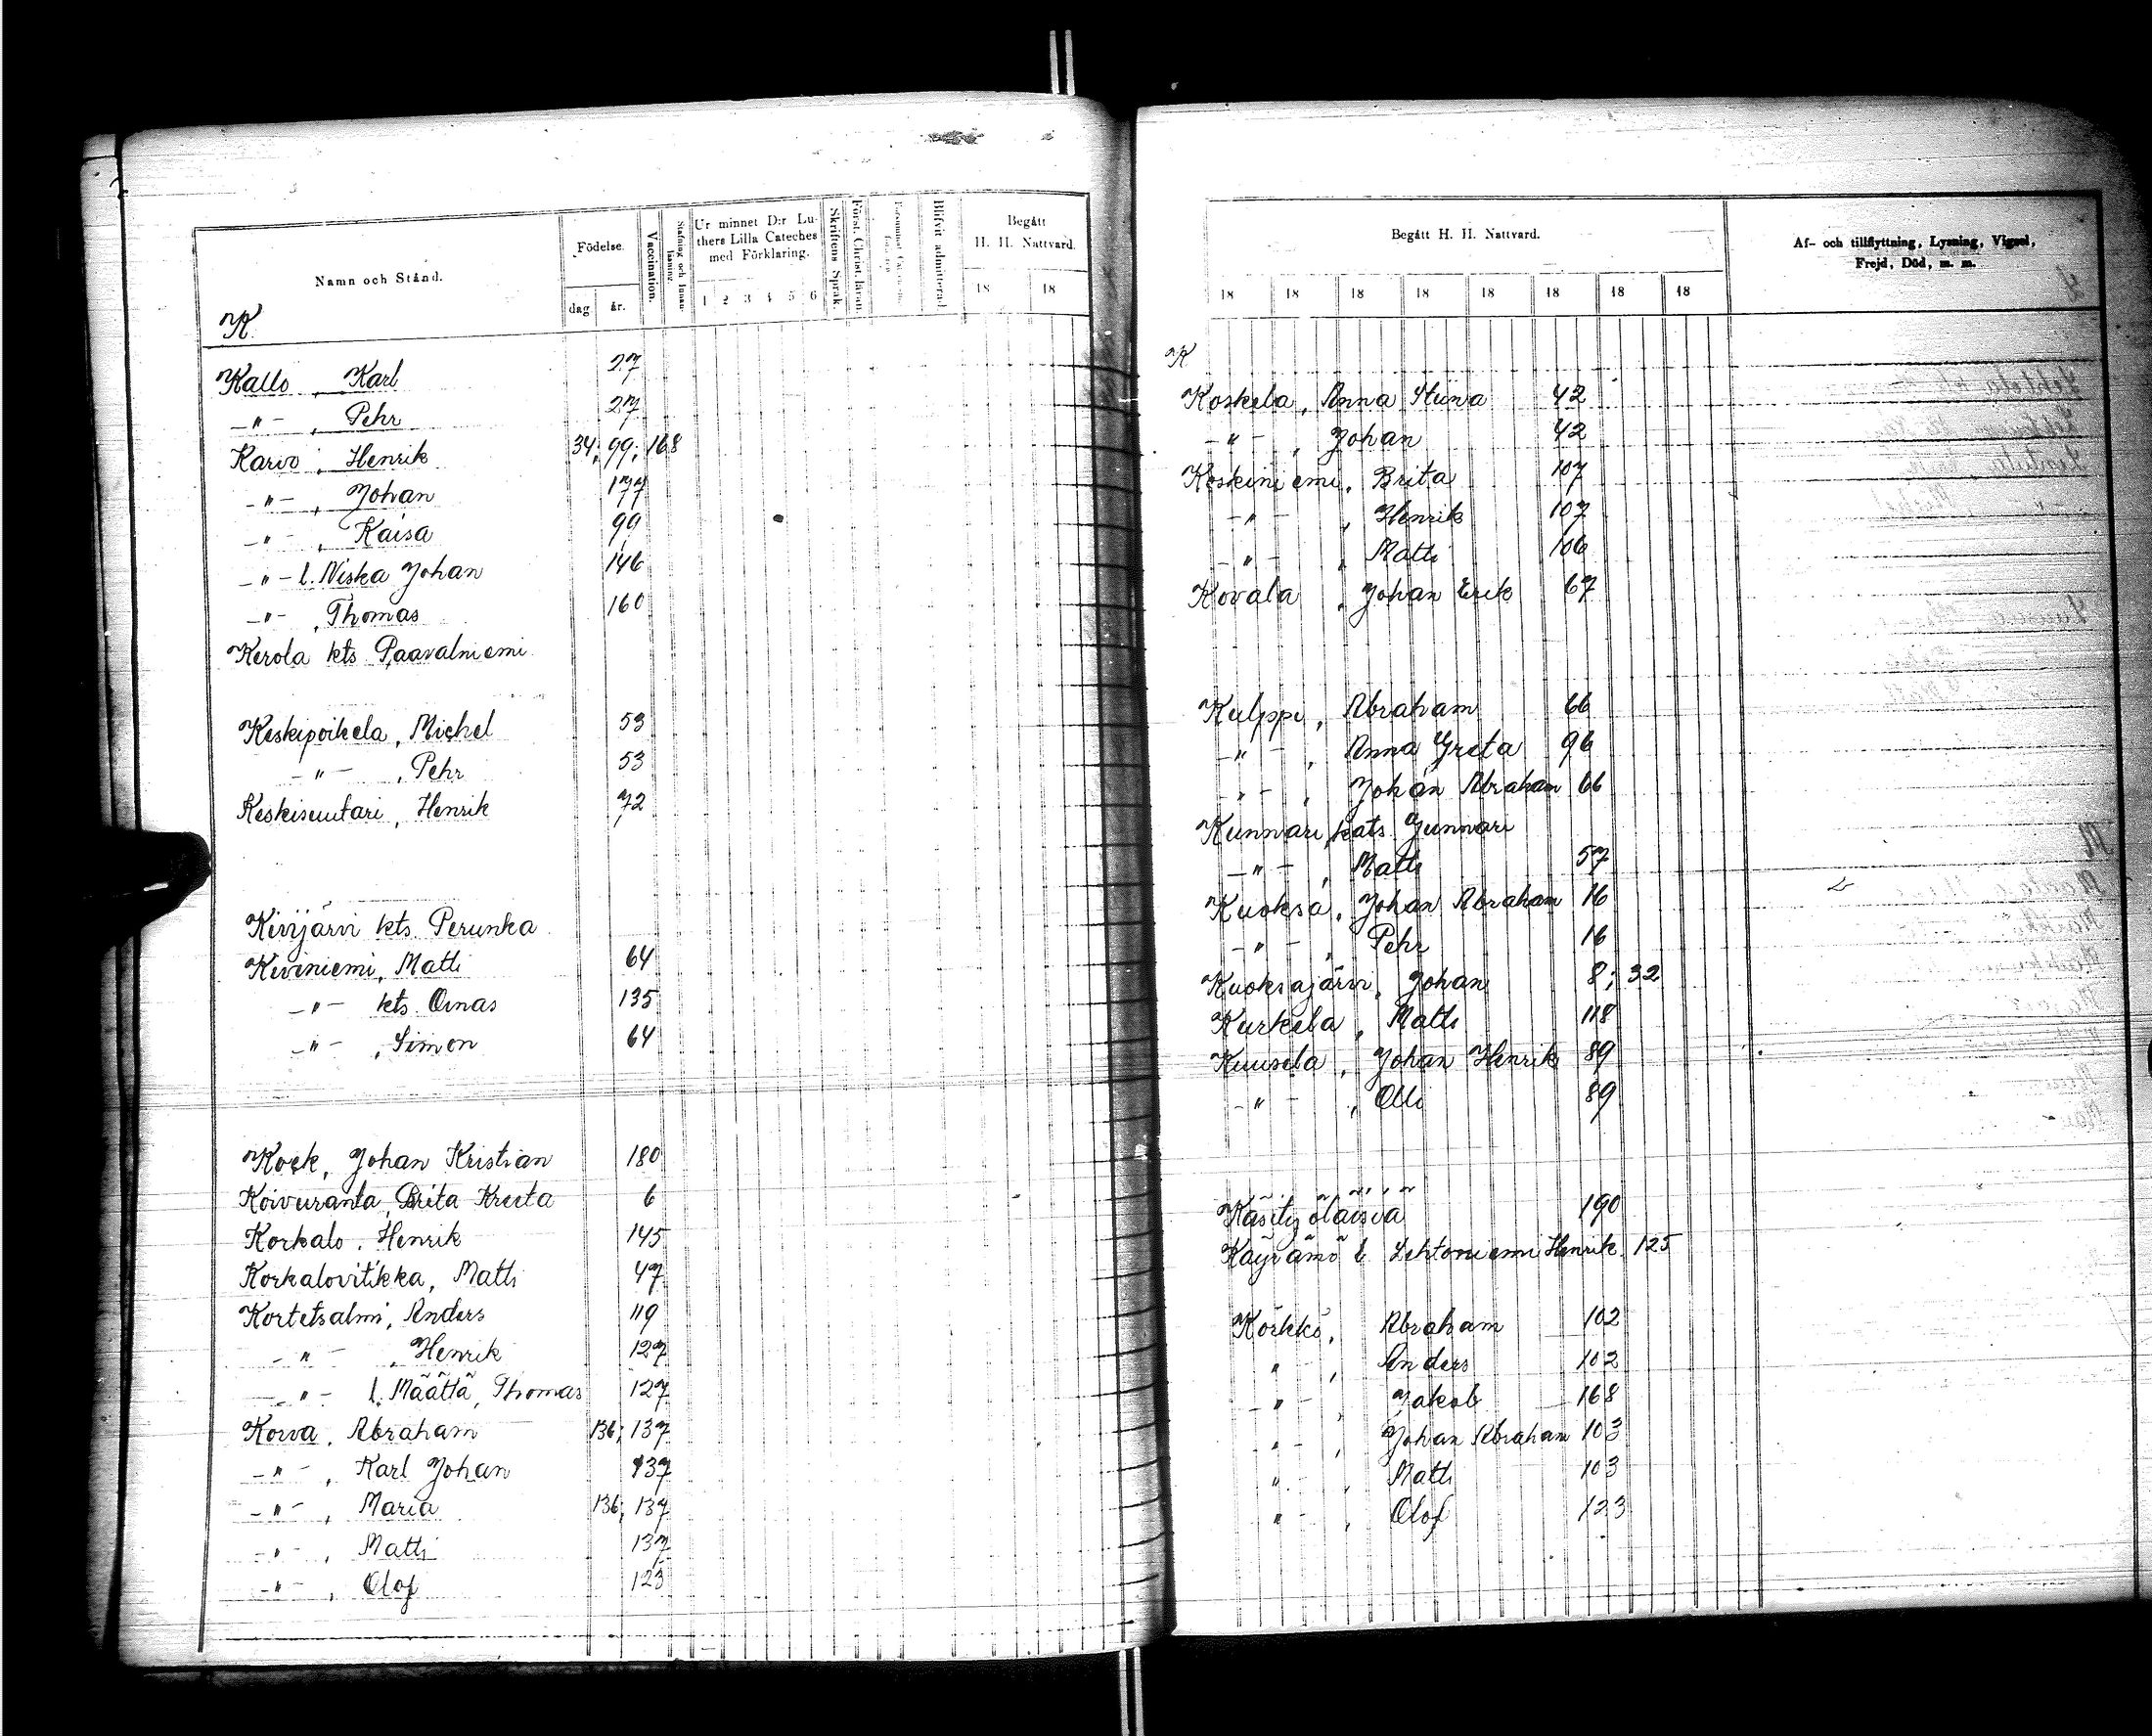 Namn och Stånd.
Födelse.
dag år.
Vaccination.
Ur minnet D:r Lu-
thers Lilla Cateches
med Förklaring.
1 2 3 4 5 6
Skriftens Språk.
Först. Christ. läran.
Blifvit admitterad
Begått
H. H. Nattvard.
18 18
K.
Kallo, Karl 27
-"- , Pehr 27
Karvo, Henrik 34; 99; 168
-"- , Johan 177
-"- , Kaisa 99
-"- l. Niska Johan 146
-"- , Thomas 160
Kerola kts Paavalniemi
Keskipoikela, Michel 53
-"- , Pehr 53
Keskisuutari, Henrik 72
Kivijärvi kts. Perunka
Keviniemi, Matti 64
-"- kts. Oinas 135
-"- , Simon 64
Kock, Johan Kristian 180
Koivuranta, Brita Kreeta 6
Korkalo, Henrik 145
Korkalovitikka, Matti 47
Kortetsalmi, Anders 119
-"- , Henrik 127
-"- l. Määttä, Thomas 127
Korva, Abraham 136; 137
-"- , Karl Johan 137
-"- , Maria 136; 137
-"- , Matti 137
-"- , Olof 123
Begått H. H. Nattvard.
18 18 18 18 18 18 18 18
Af- och tillflyttning, Lysning, Vigsel,
Frejd, Död, m. m.
K
Koskela, Anna Stiina 42
-"- , Johan 42
Koskiniemi, Brita 107
-"- , Henrik 107
-"- , Matti 106
Kovala, Johan Erik 67
Kulppi, Abraham 66
-"- , Anna Greta 96
-"- , Johan Abraham 66
Kunnari, kats. Gunnari
-"- , Matti 57
Kuoksa, Johan Abraham 16
-"- , Pehr 16
Kuoksajärvi, Johan 8; 32
Kurkela, Matti 118
Kuusela, Johan Henrik 89
-"- , Olli 89
Käsityöläisiä 190
Käyrämö l. Lehtoniemi Henrik 125
Körkkö, Abraham 102
" - , Anders 102
-"- , Jakob 168
"- , Johan Abraham 103
" - , Matti 103
" - , Olof 123